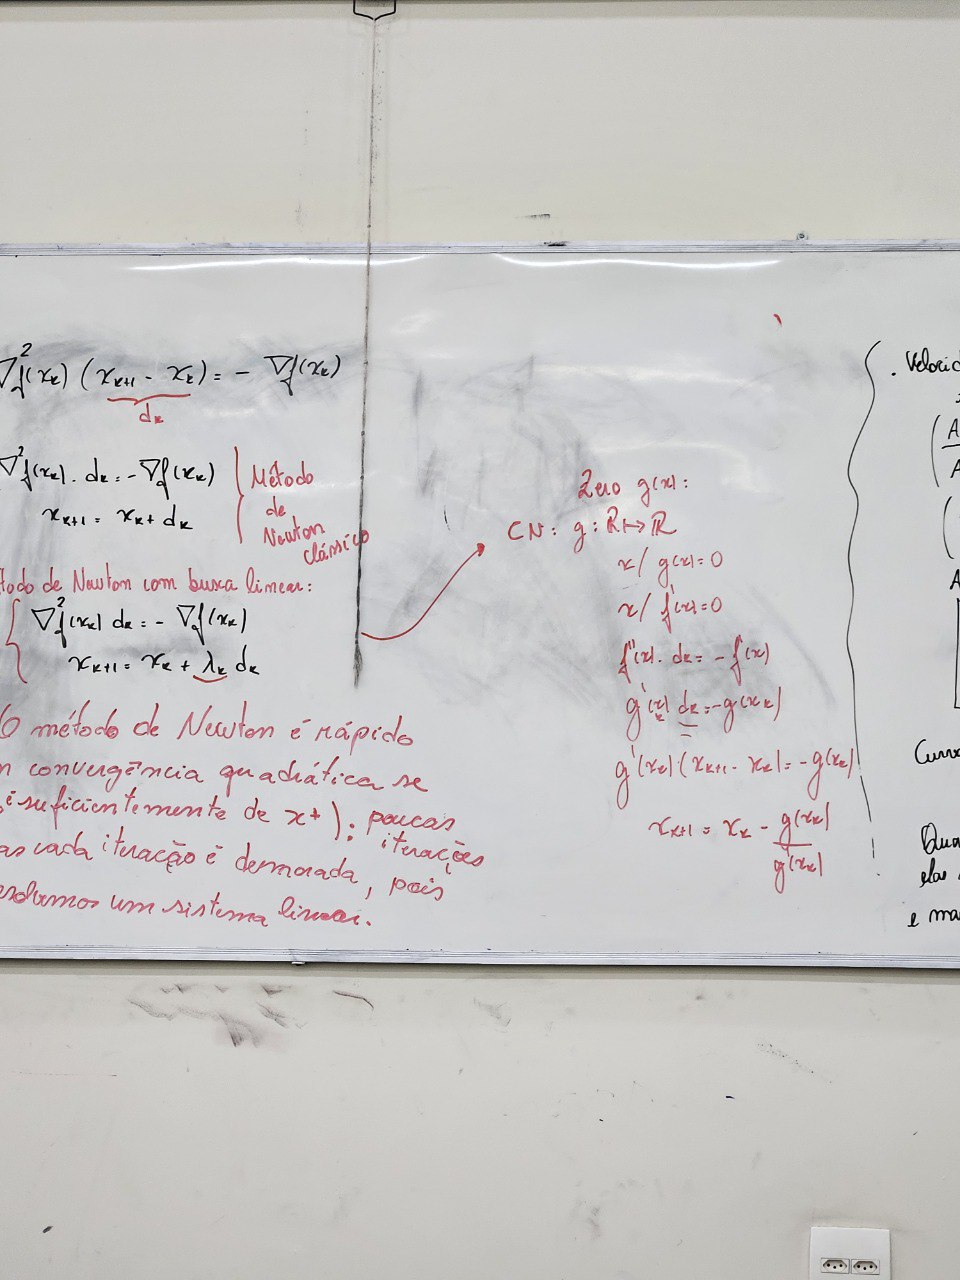 ∇²f(x_k) (x_{k+1} - x_k) = - ∇f(x_k)
d_k
∇²f(x_k) . d_k = - ∇f(x_k)
x_{k+1} = x_k + d_k
Método
de
Newton
clássico
todo de Newton com busca linear:
∇²f(x_k) d_k = - ∇f(x_k)
x_{k+1} = x_k + λ_k d_k
O método de Newton é rápido
convergência quadrática se
suficientemente de x*): poucas
iterações
as cada iteração é demorada, pois
solvemos um sistema linear.
Zero g(x):
CN: g: ℝ ↦ ℝ
x/ g(x) = 0
x/ f'(x) = 0
f''(x). d_k = - f'(x)
g'(x_k) d_k = - g(x_k)
g'(x_k) (x_{k+1} - x_k) = - g(x_k)
x_{k+1} = x_k - g(x_k)
g'(x_k)
. Velocid
(A
A
(
A
Curva
Qua
elas
e ma